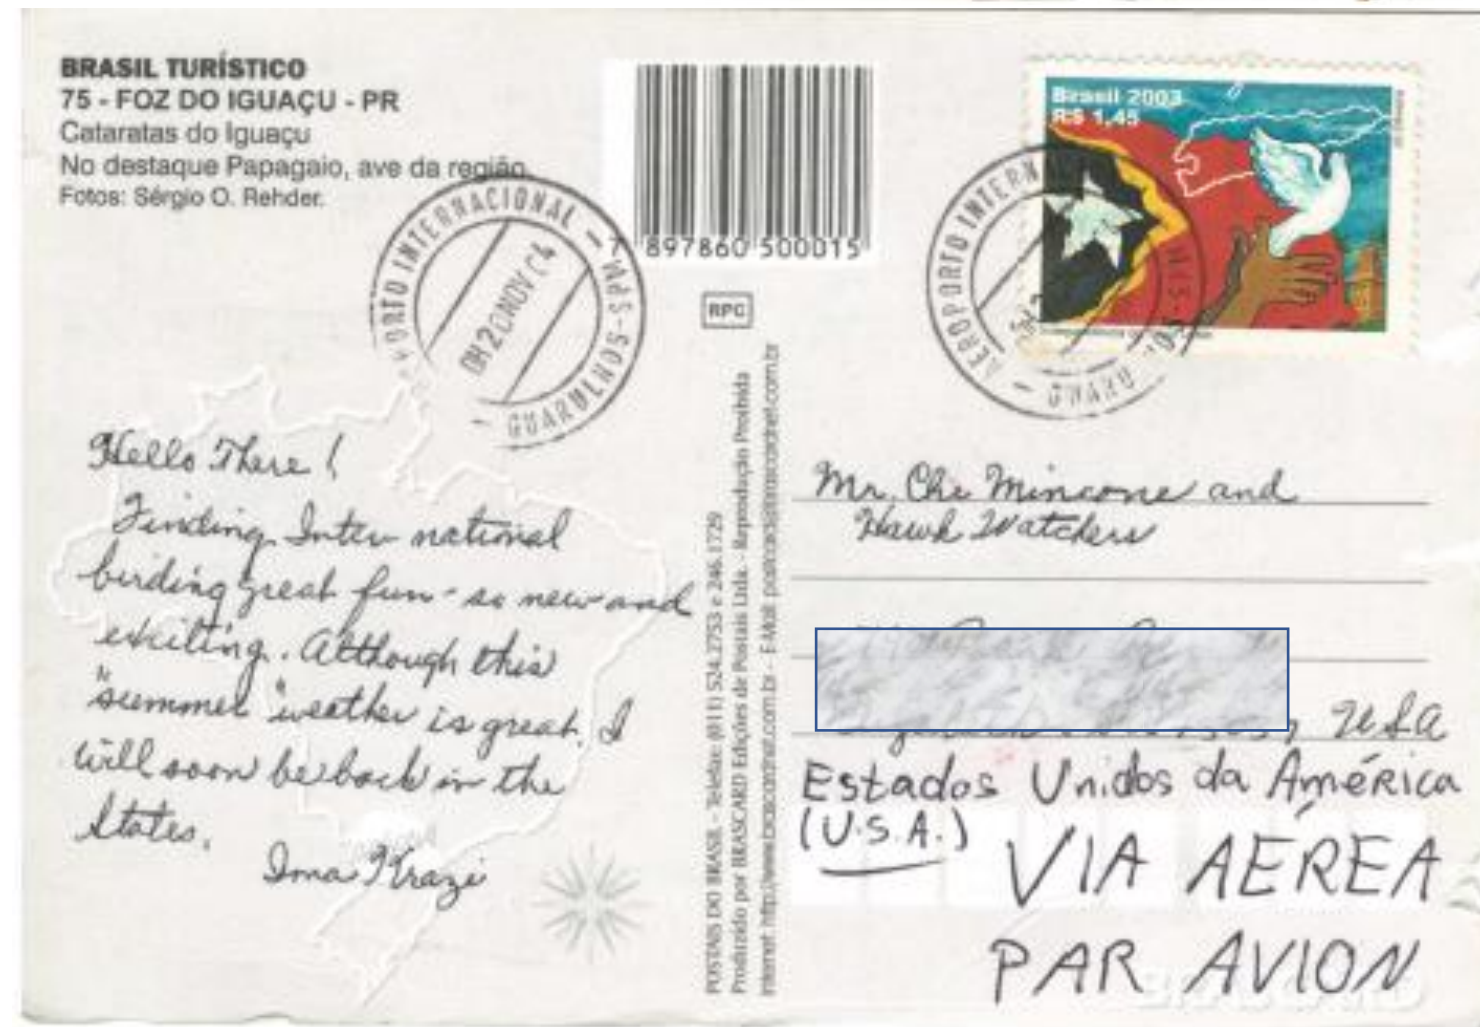 BRASIL TURÍSTICO
75 - FOZ DO IGUAÇU - PR
Cataratas do Iguaçu
No destaque Papagaio, ave da região.
Fotos: Sérgio O. Rehder.
AEROPORTO INTERNACIONAL – MIS-SPM
GUARULHOS
20NOV 04
7 897860 500015
RPC
Brasil 2003
R$ 1,45
AEROPORTO INTERN
GUARU
Hello There!
Finding International
birding great fun - so new and
exciting. Although this
"summer" weather is great, I
will soon be back in the
States.
Ima Krazi
POSTAIS DO BRASIL - Telefax: (011) 524.2753 e 246.1729
Produzido por BRASCARD Edições de Postais Ltda. - Reprodução Proibida
Internet: http://www.brascardnet.com.br - E-Mail: postcards@brascardnet.com.br
Mr. Che Mincone and
Hawk Watchers
USA
Estados Unidos da América
(U.S.A.)
VIA AÉREA
PAR AVION